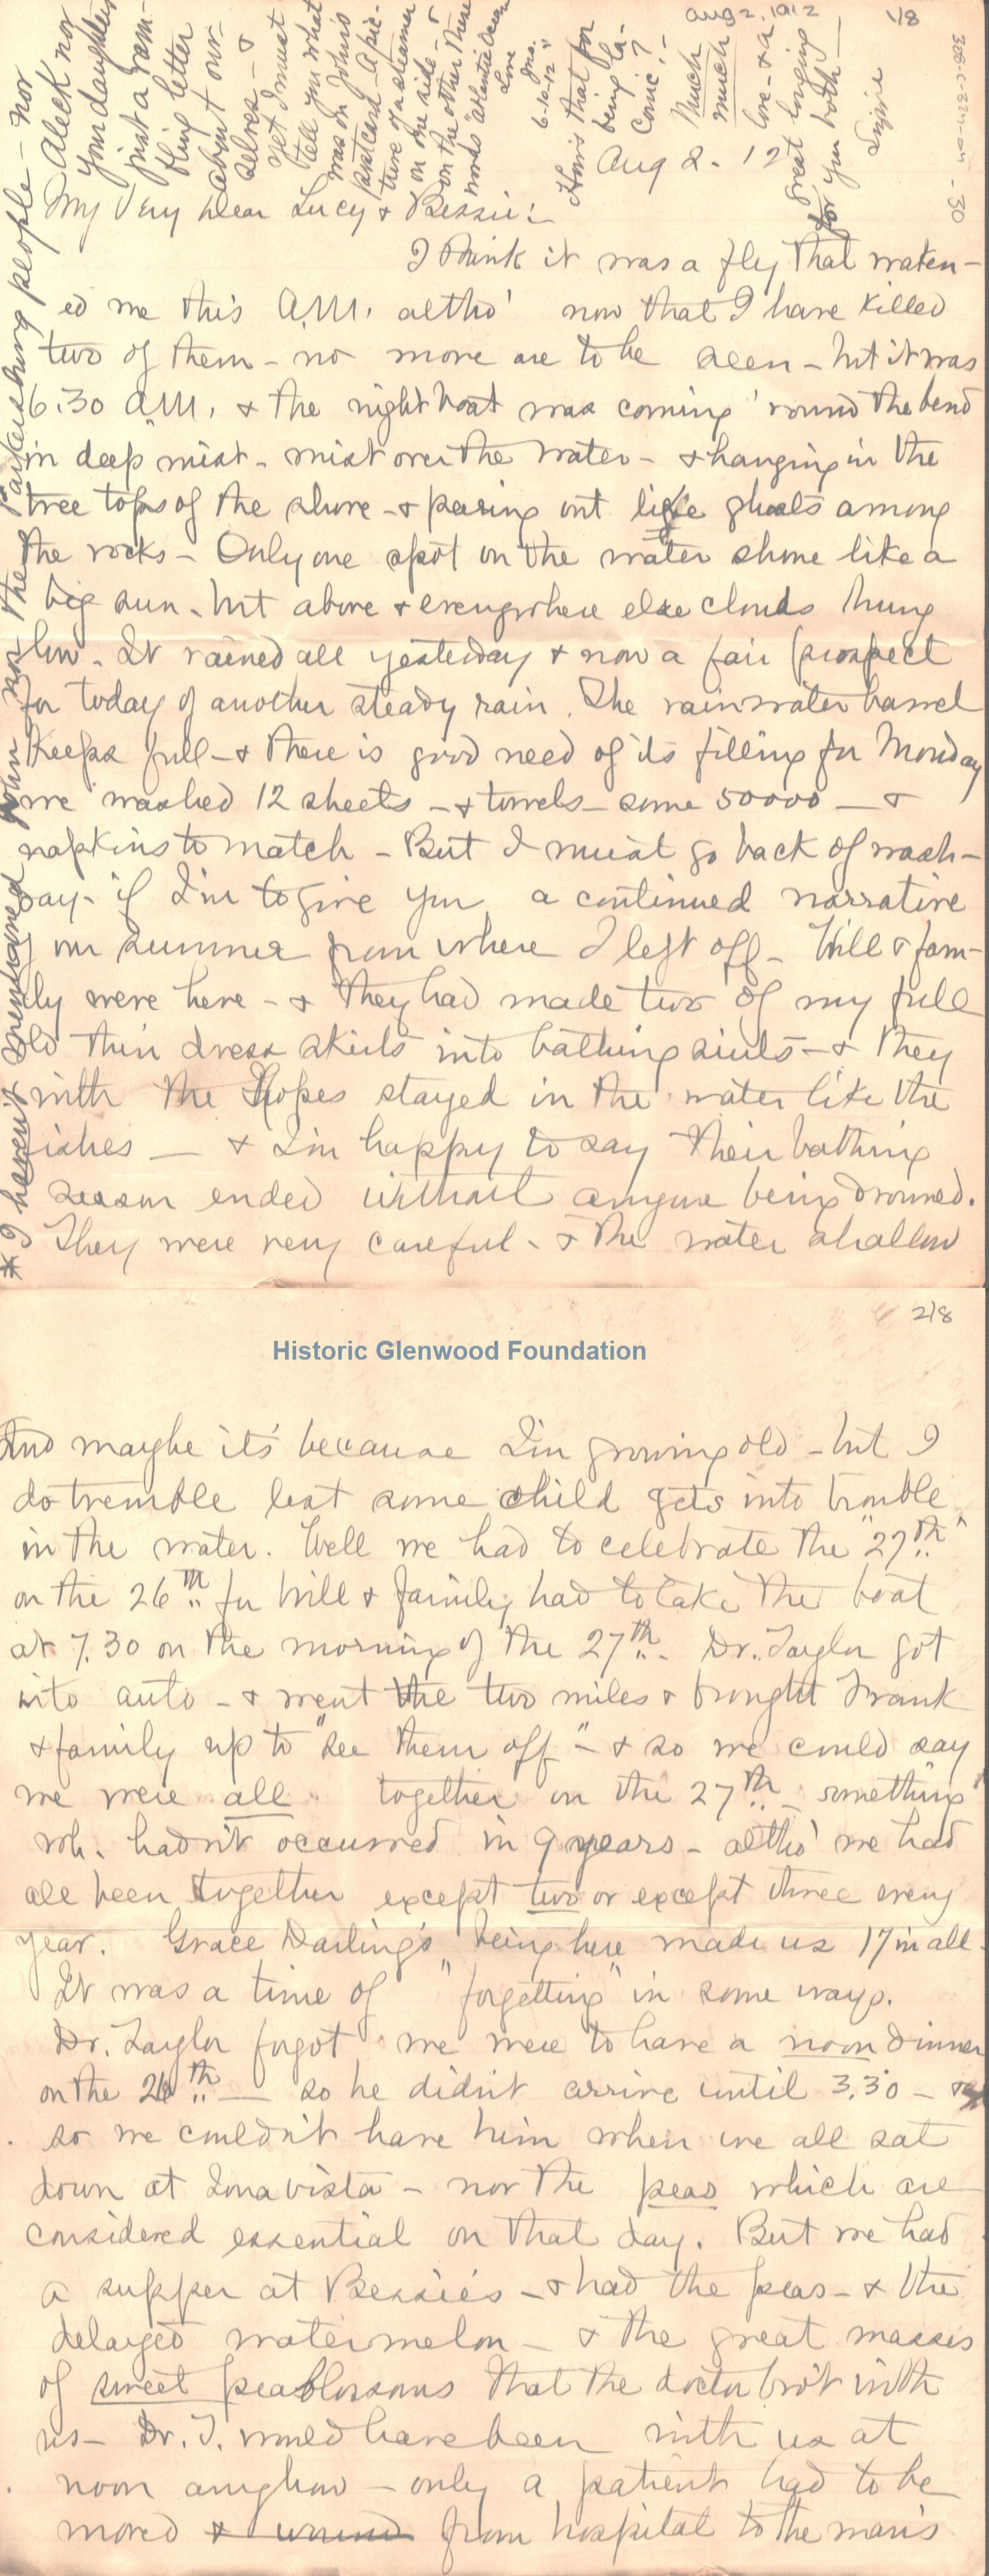 Aug 2. 1912
1/8
Aug 2. 12
My Very Dear Lucy & Bessie:-
I think it was a fly that waken-
ed me this A.M. altho' now that I have killed
two of them - no more are to be seen - but it was
6.30 A.M. & the night boat was coming 'round the bend
in deep mist - mist over the water - & hanging in the
tree tops of the shore - & peering out like ghosts among
the rocks - Only one spot on the water shone like a
big sun - but above & everywhere else clouds hung
low. It rained all yesterday & now a fair prospect
for today of another steady rain. The rainwater barrel
keeps full - & there is good need of its filling for Monday
we washed 12 sheets - & towels - some 50000 - &
napkins to match - But I must go back of wash-
day - if I'm to give you a continued narrative
of our summer from where I left off - Will & fam-
ily were here - & they had made two of my full
old thin dress skirts into bathing suits - & they
with the Hopes stayed in the water like the
fishes - & I'm happy to say their bathing
season ended without anyone being drowned.
They were very careful - & the water shallow
* I haven't mentioned John nor the Parkersburg people - nor
Aleck nor
your daughter
just a ram-
bling letter
about our-
selves - &
yet I must
tell you what
was on John's
postcard - A pic-
ture of a steamer
on one side - &
on the other these
words "Atlantic Ocean
Love
Jno.
6-10-12"
How's that for
being la-
conic? -
Much
much
love - & a
great longing
for you both -
Lizzie
2/8
Historic Glenwood Foundation
And maybe it's because I'm growing old - but I
do tremble lest some child gets into trouble
in the water. Well we had to celebrate the "27th"
on the 26th for Will & family had to take the boat
at 7.30 on the morning of the 27th. Dr. Taylor got
into auto - & went the two miles & brought Frank
& family up to "see them off" - & so we could say
we were all together on the 27th - something
wh. hadn't occurred in 9 years - altho' we had
all been together except two or except three every
year. Grace Darling's being here made us 17 in all.
It was a time of "forgetting" in some ways.
Dr. Taylor forgot we were to have a noon dinner
on the 26th - so he didn't arrive until 3.30 - &
so we couldn't have him when we all sat
down at Iona vista - nor the peas which are
considered essential on that day. But we had
a supper at Bessie's - & had the peas - & the
delayed watermelon - & the great masses
of sweet pea blossoms that the doctor bro't with
us - Dr. T. would have been with us at
noon anyhow - only a patient had to be
moved & from hospital to the man's